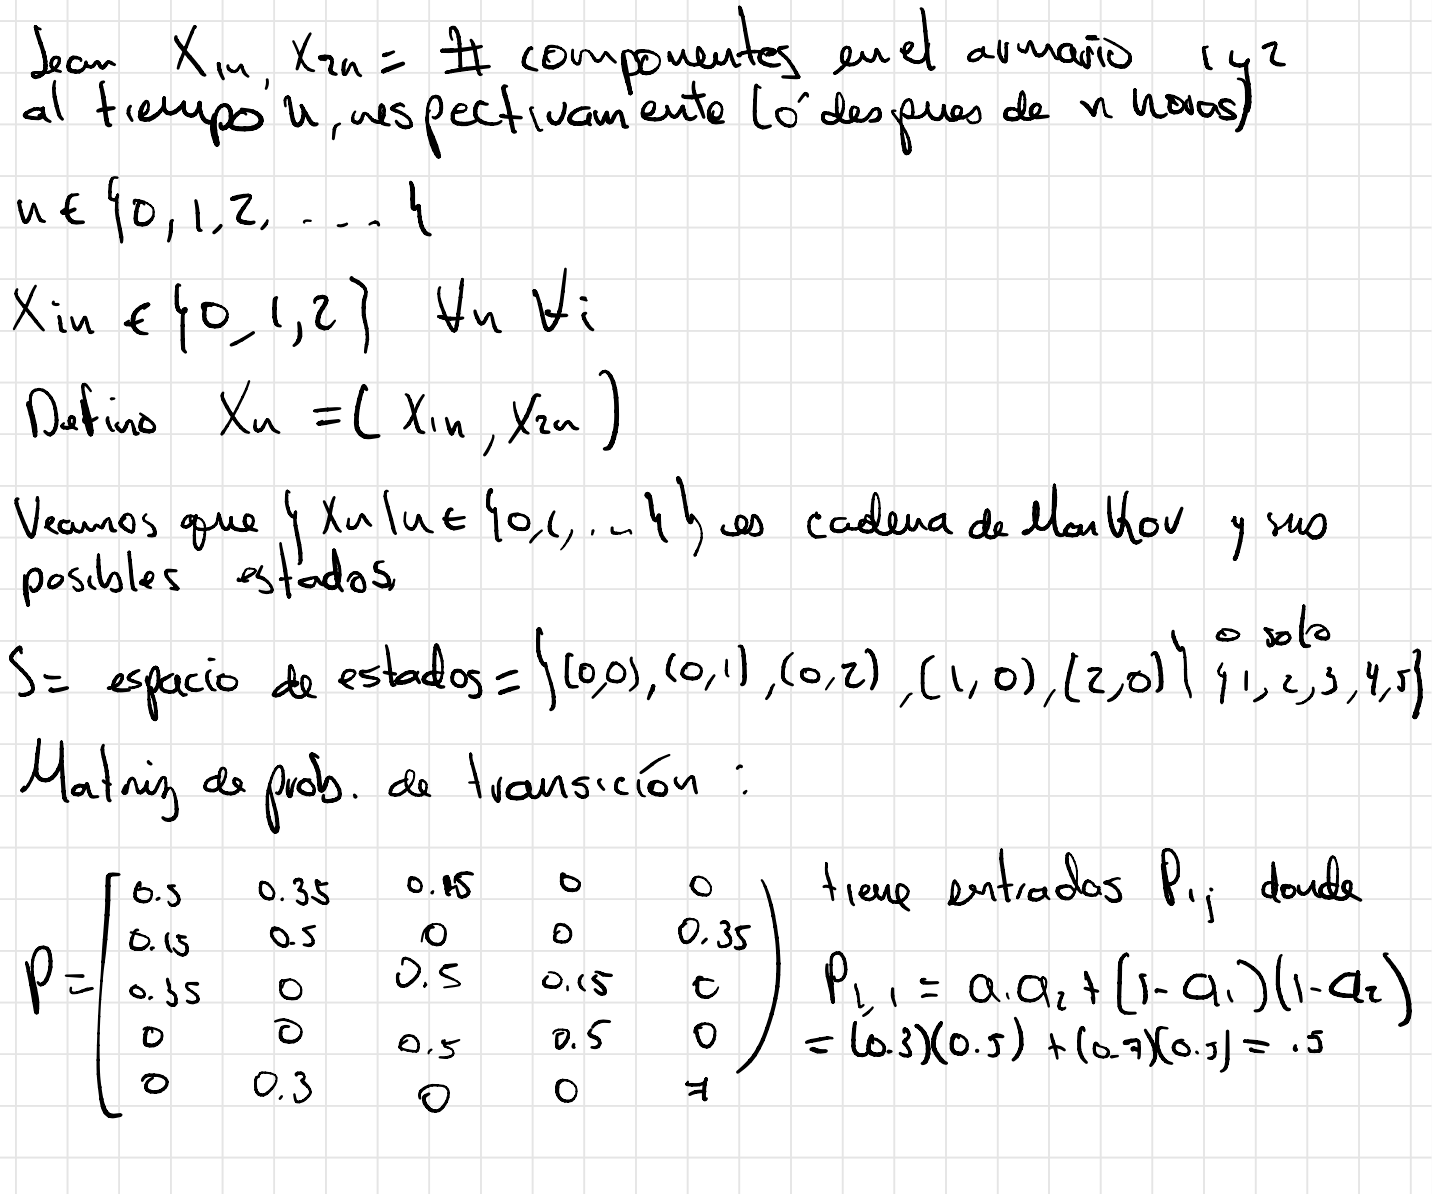 Sean X₁ₙ, X₂ₙ = # componentes en el armario 1 y 2
al tiempo n, respectivamente (ó despues de n horas)
n ∈ {0, 1, 2, ....}
Xᵢₙ ∈ {0, 1, 2} ∀n ∀i
Defino Xₙ = (X₁ₙ, X₂ₙ)
Veamos que {Xₙ | n ∈ {0, 1, ...}} es cadena de Markov y sus
posibles estados
S = espacio de estados = {(0,0), (0,1), (0,2), (1,0), (2,0)} o solo {1, 2, 3, 4, 5}
Matriz de prob. de transición :
P = [ 0.5 0.35 0.15 0 0 tiene entradas Pᵢⱼ donde
0.15 0.5 0 0 0.35
0.35 0 0.5 0.15 0 P₁,₁ = a₁a₂ + (1-a₁)(1-a₂)
0 0 0.5 0.5 0 = (0.3)(0.5) + (0.7)(0.5) = .5
0 0.3 0 0 7